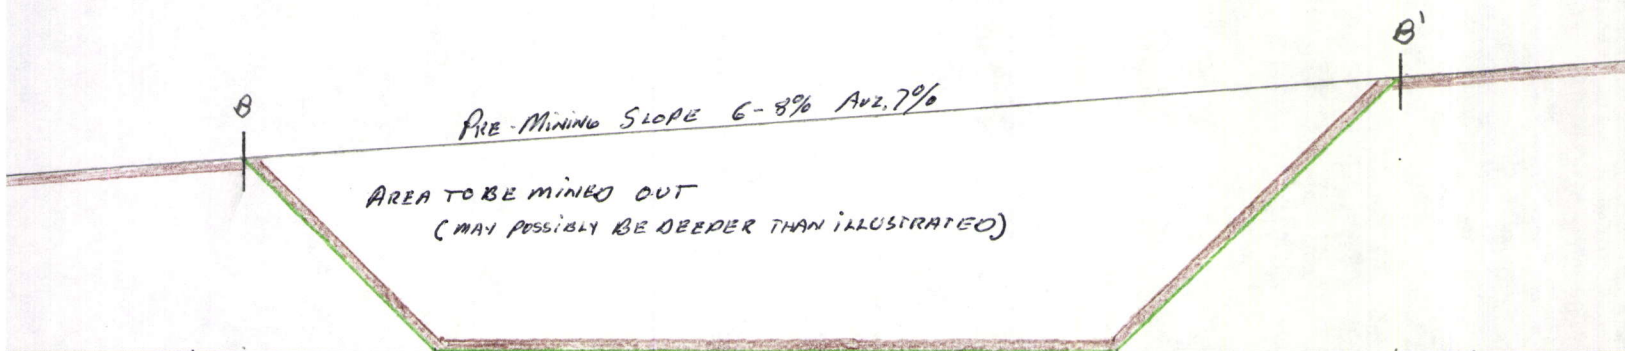 B'
B
PRE-MINING SLOPE 6-8% AVE. 7%
AREA TO BE MINED OUT
(MAY POSSIBLY BE DEEPER THAN ILLUSTRATED)